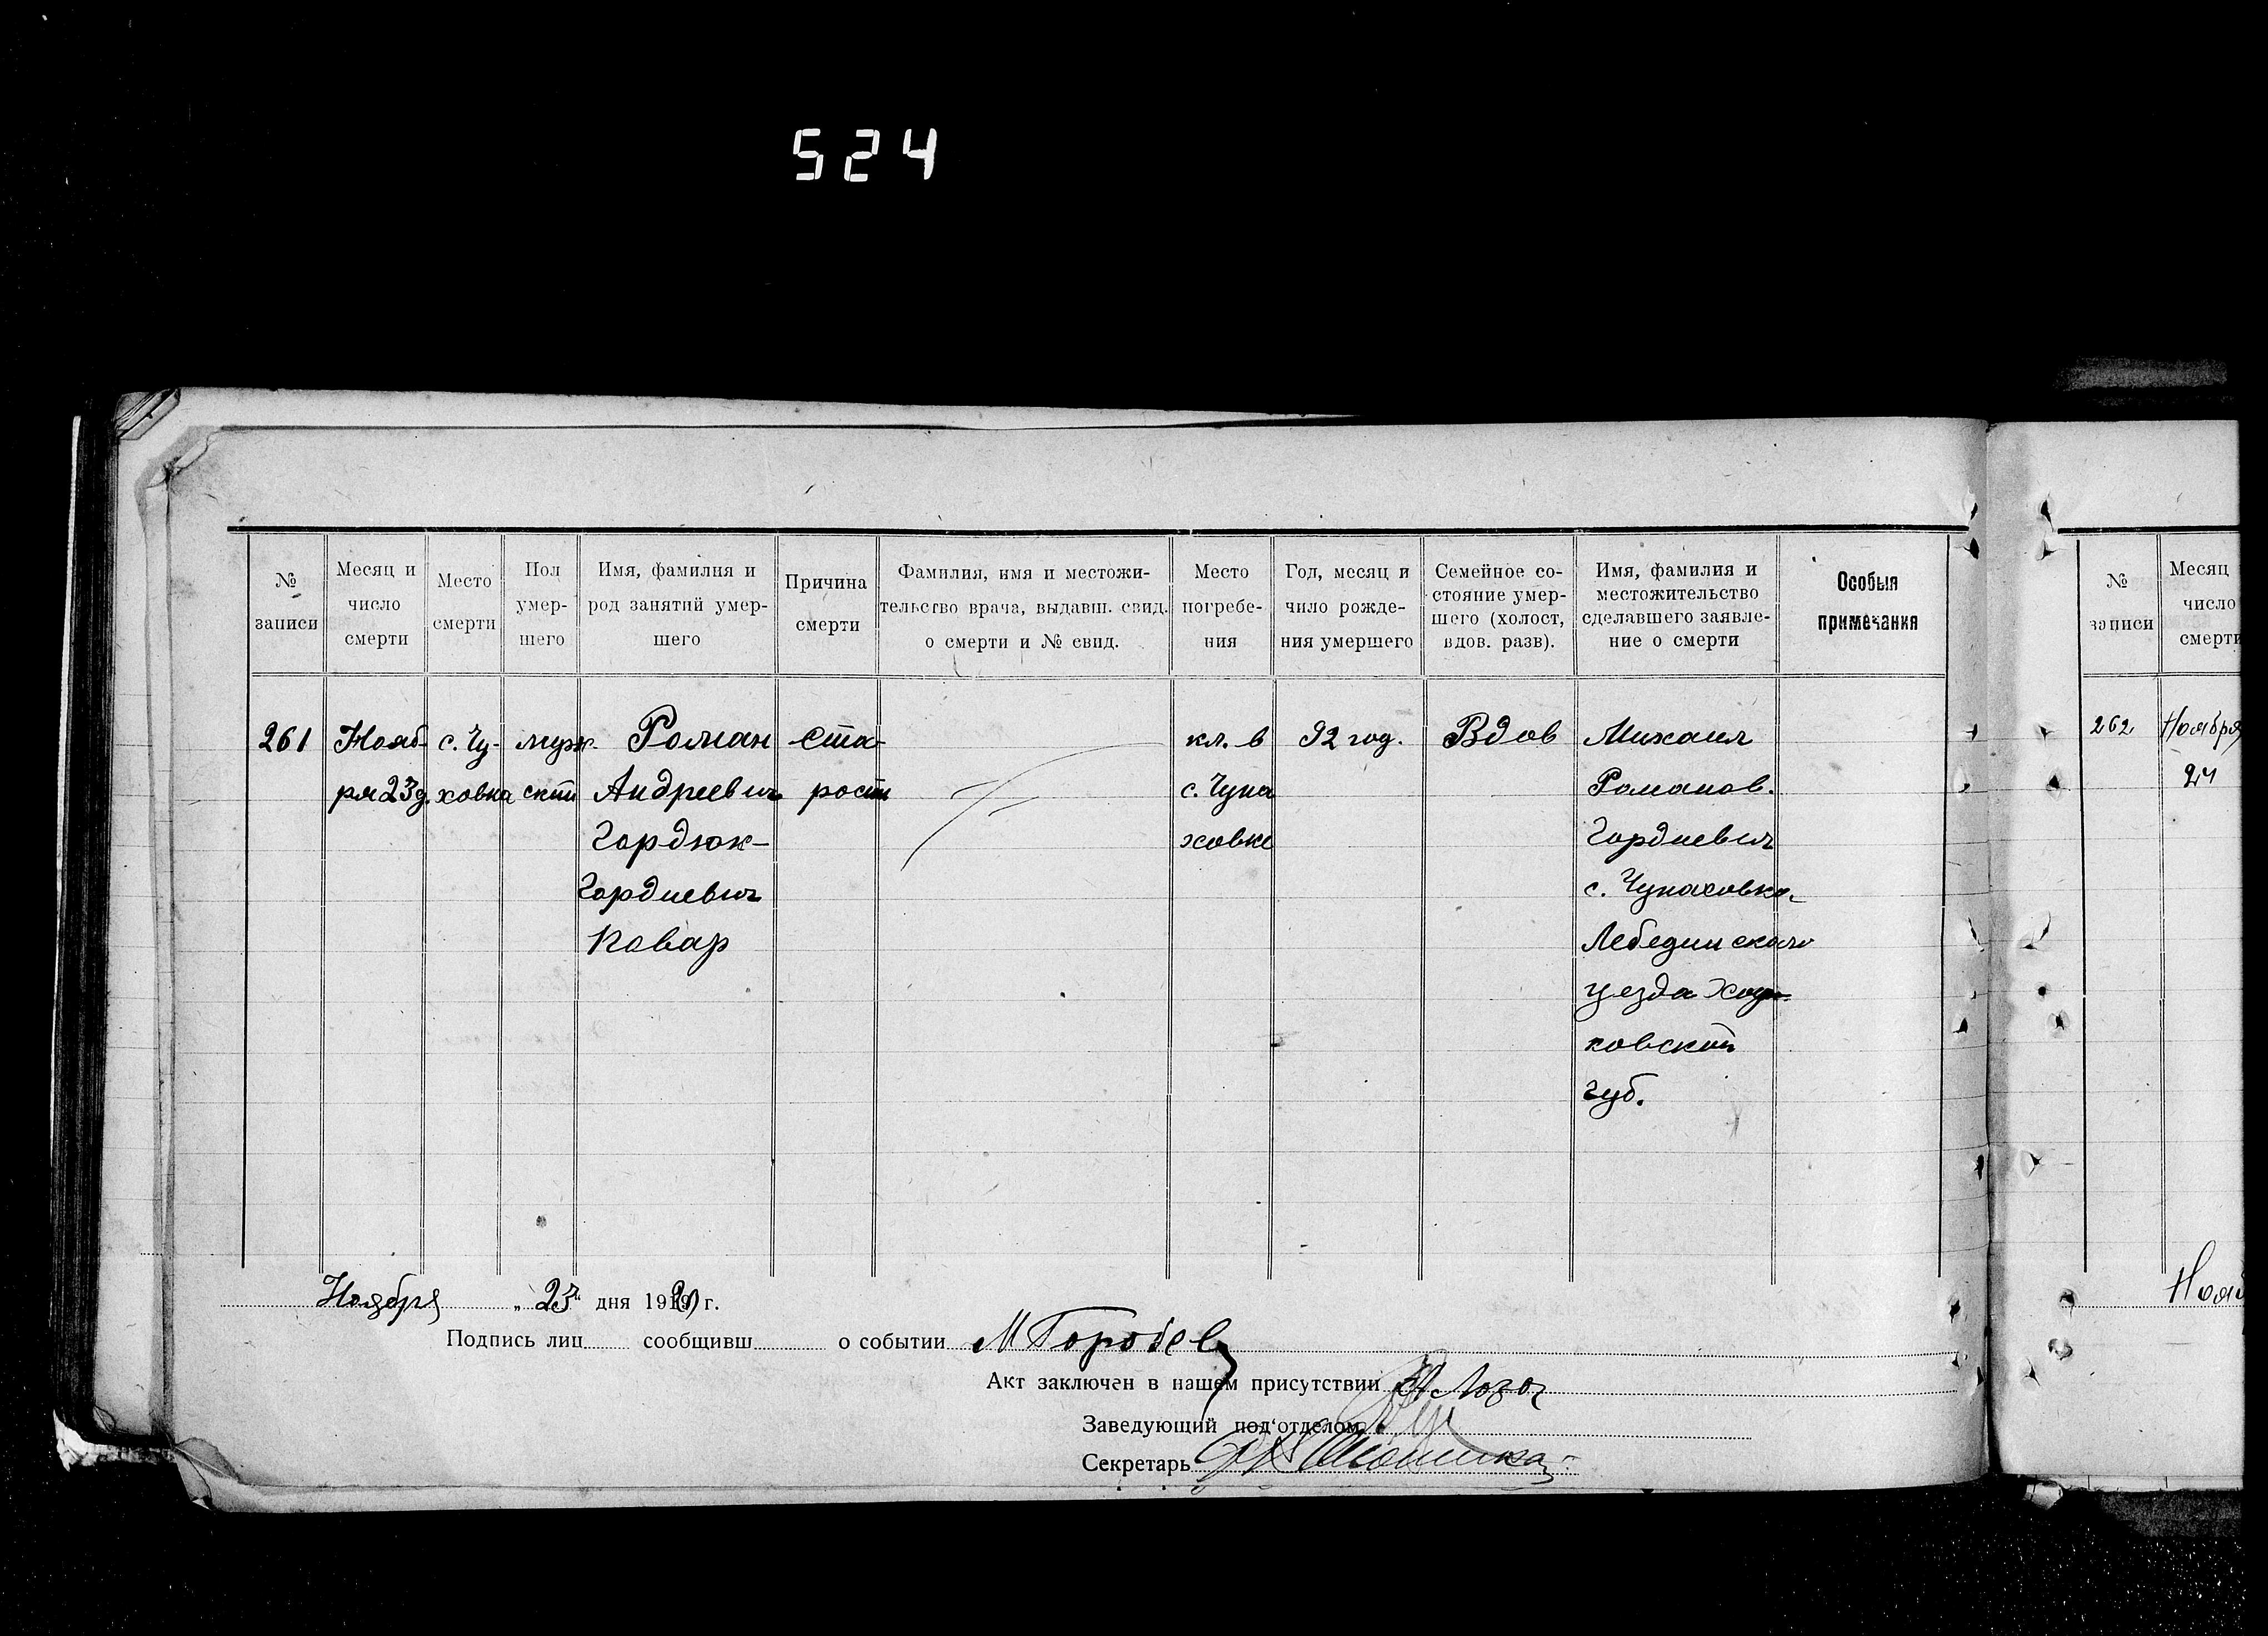 524
№ записи
Месяц и число смерти
Место смерти
Пол умер-шего
Имя, фамилия и род занятий умер-шего
Причина смерти
Фамилия, имя и местожи-тельство врача, выдавш. свид. о смерти и № свид.
Место погребе-ния
Год, месяц и чило рожде-ния умершего
Семейное со-стояние умер-шего (холост, вдов. разв).
Имя, фамилия и местожительство сделавшего заявле-ние о смерти
Особыя примечания
261
Нояб-
ря 23 д.
с. Чу-
ховка
муж-
ски
Роман
Андреевич
Гордюк-
Гордиевич
Повар
Ста-
рости
кл. в
с. Чупа
ховке
92 год.
Вдов
Михаил
Романов.
Гордиевич
с. Чупаховка
Лебединскаго
уезда Харь-
ковской
губ.
Ноября „23“ дня 1920 г.
Подпись лиц сообщивш о событии
Акт заключен в нашем присутствии
Заведующий под'отделом
Секретарь
№ записи
Месяц число смерти
262
Ноября
24